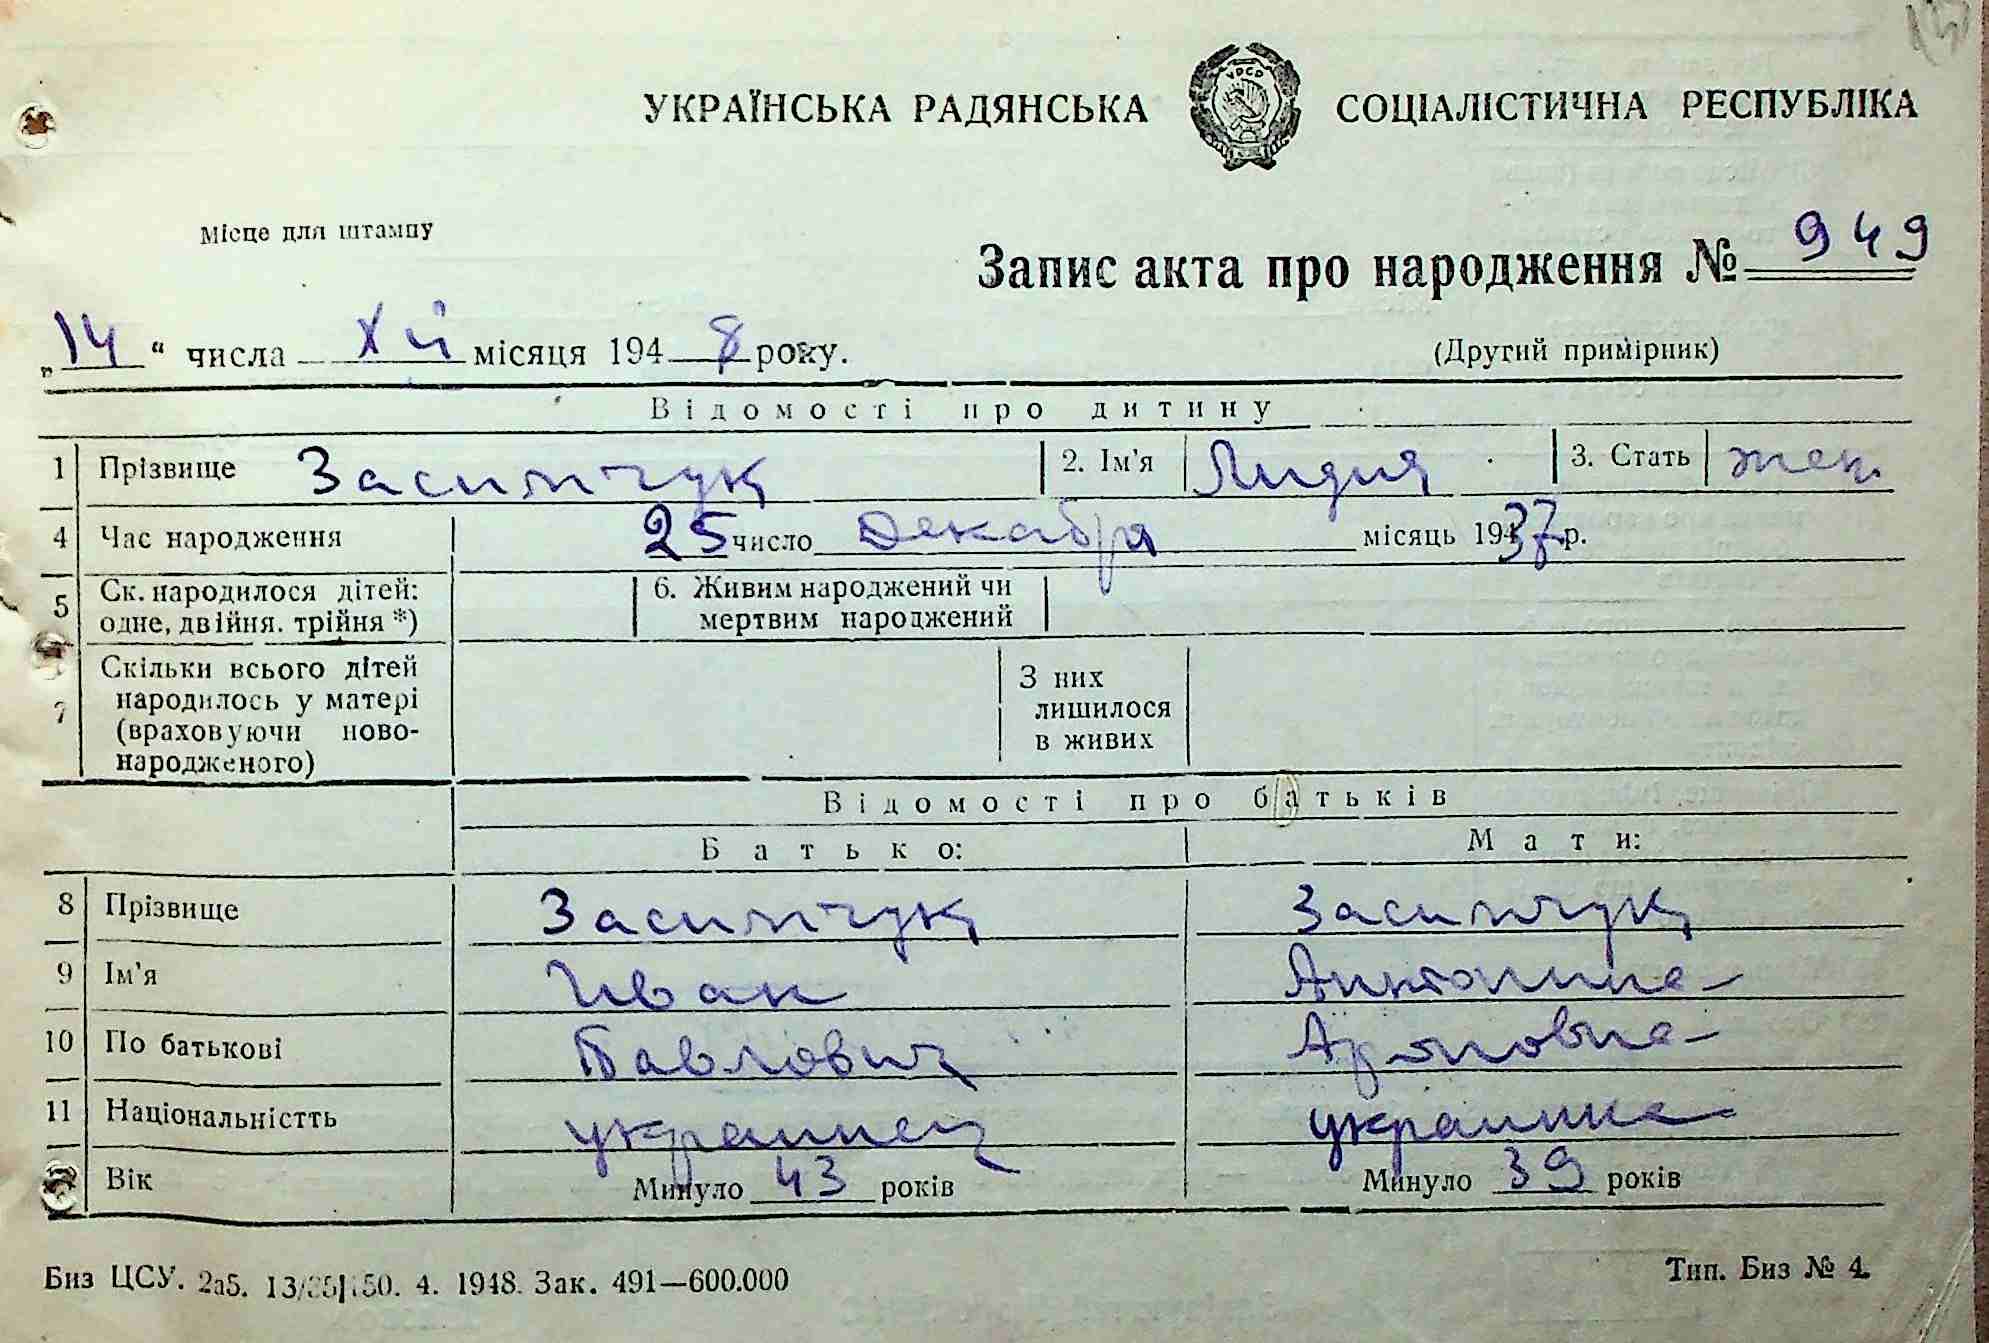 УКРАЇНСЬКА РАДЯНСЬКА СОЦІАЛІСТИЧНА РЕСПУБЛІКА
УРСР
Місце для штампу
Запис акта про народження № 949
„14“ числа XII місяця 1948 року.
(Другий примірник)
Відомості про дитину
1 Прізвище Засимчук 2. Ім'я Лидия 3. Стать жен.
4 Час народження 25 число Декабря місяць 1937 р.
5 Ск. народилося дітей: одне, двійня. трійня *) 6. Живим народжений чи мертвим народжений
7 Скільки всього дітей народилось у матері (враховуючи ново-народженого) З них лишилося в живих
Відомості про батьків
Батько: Мати:
8 Прізвище Засимчук Засимчук
9 Ім'я Иван Антонина
10 По батькові Павлович
11 Національністть украинец украинка
Вік Минуло 43 років Минуло 39 років
Биз ЦСУ. 2а5. 4. 1948. Зак. 491—600.000
Тип. Биз № 4.